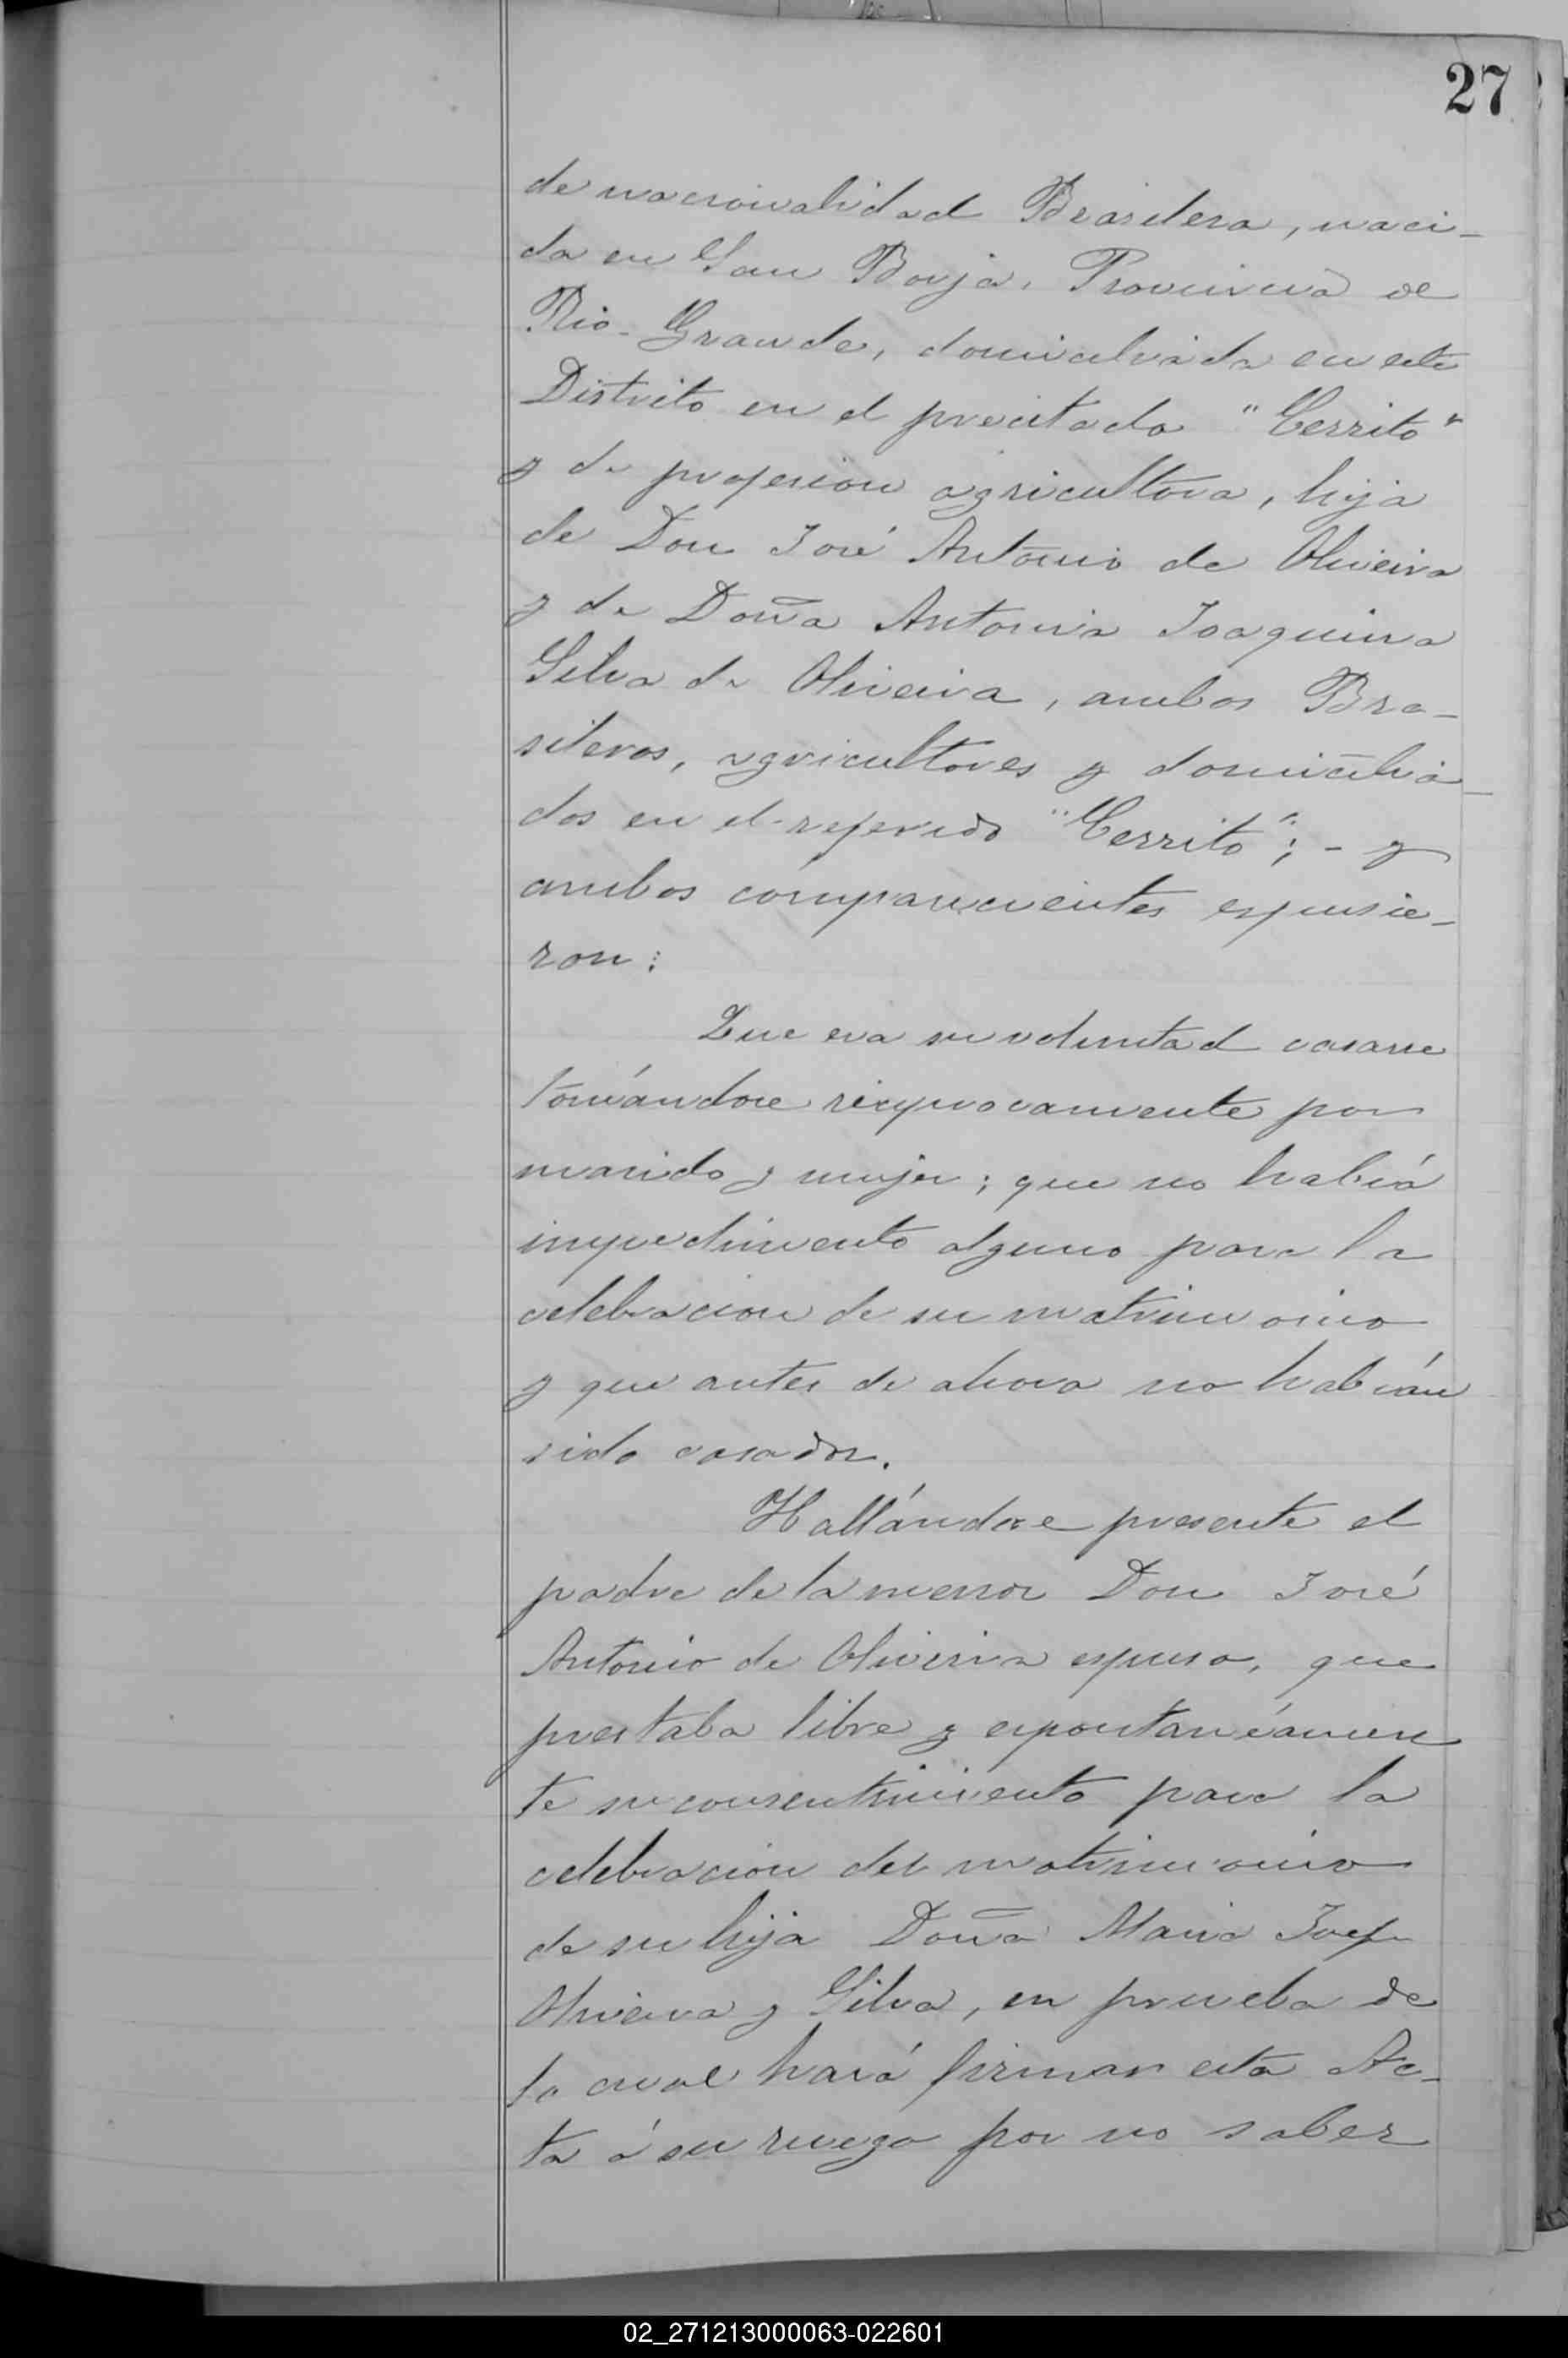 27
de nacionalidad Brasilera, naci-
da en San Borja, Provincia de
Rio-Grande, domiciliada en este
Distrito en el precitado "Cerrito"
y de profesion agricultora, hija
de Don José Antonio de Oliveira
y de Doña Antonia Joaquina
Silva de Oliveira, ambos Bra-
sileros, agricultores y domicilia-
dos en el referido "Cerrito"; - y
ambos comparecientes espusie-
ron:
Que era su voluntad casarse
tomándose reciprocamente por
marido y mujer; que no habiá
impedimento alguno para la
celebracion de su matrimonio
y que antes de ahora no habián
sido casados.
Hallándose presente el
padre de la menor Don José
Antonio de Oliveira espuso, que
prestaba libre y espontanéamen
te su consentimiento para la
celebracion del matrimonio
de su hija Doña Maria Josefa
Oliveira y Silva, en prueba de
lo cual hará firmar esta Ac-
ta á su ruego por no saber
02_271213000063-022601